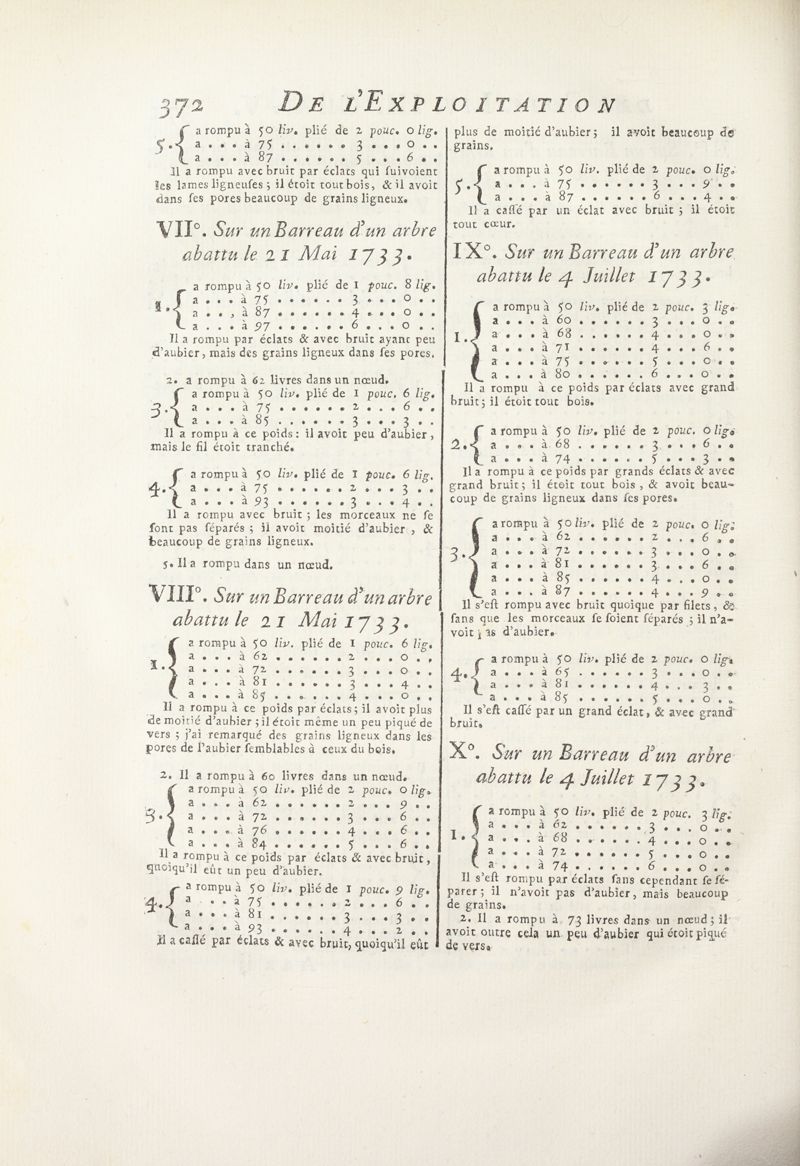 372 DE L'EXPLOITATION
5. { a rompu à 50 liv. plié de 2 pouc. 0 lig.
a . . . à 75 . . . . . . 3 . . . 0 . .
a . . . à 87 . . . . . . 5 . . . 6 . .
Il a rompu avec bruit par éclats qui suivoient
les lames ligneuses ; il étoit tout bois, & il avoit
dans ses pores beaucoup de grains ligneux.
VII°. Sur un Barreau d'un arbre
abattu le 21 Mai 1733.
1. { a rompu à 50 liv. plié de 1 pouc. 8 lig.
a . . . à 75 . . . . . . 3 . . . 0 . .
a . . , à 87 . . . . . . 4 . . . 0 . .
a . . . à 97 . . . . . . 6 . . . 0 . .
Il a rompu par éclats & avec bruit ayant peu
d'aubier, mais des grains ligneux dans ses pores.
2. a rompu à 62 livres dans un nœud.
3. { a rompu à 50 liv. plié de 1 pouc. 6 lig.
a . . . à 75 . . . . . . 2 . . . 6 . .
a . . . à 85 . . . . . . 3 . . . 3 . .
Il a rompu à ce poids : il avoit peu d'aubier,
mais le fil étoit tranché.
4. { a rompu à 50 liv. plié de 1 pouc. 6 lig.
a . . . à 75 . . . . . . 2 . . . 3 . .
a . . . à 93 . . . . . . 3 . . . 4 . .
Il a rompu avec bruit ; les morceaux ne se
sont pas séparés ; il avoit moitié d'aubier , &
beaucoup de grains ligneux.
5. Il a rompu dans un nœud.
VIII°. Sur un Barreau d'un arbre
abattu le 21 Mai 1733.
1. { a rompu à 50 liv. plié de 1 pouc. 6 lig.
a . . . à 62 . . . . . . 2 . . . 0 . .
a . . . à 72 . . . . . . 3 . . . 0 . .
a . . . à 81 . . . . . . 3 . . . 4 . .
a . . . à 85 . . . . . . 4 . . . 0 . .
Il a rompu à ce poids par éclats; il avoit plus
de moitié d'aubier ; il étoit même un peu piqué de
vers ; j'ai remarqué des grains ligneux dans les
pores de l'aubier semblables à ceux du bois.
2. Il a rompu à 60 livres dans un nœud.
3. { a rompu à 50 liv. plié de 2 pouc. 0 lig.
a . . . à 62 . . . . . . 2 . . . 9 . .
a . . . à 72 . . . . . . 3 . . . 6 . .
a . . . à 76 . . . . . . 4 . . . 6 . .
a . . . à 84 . . . . . . 5 . . . 6 . .
Il a rompu à ce poids par éclats & avec bruit,
quoiqu'il eût un peu d'aubier.
4. { a rompu à 50 liv. plié de 1 pouc. 9 lig.
a . . . à 75 . . . . . . 2 . . . 6 . .
a . . . à 81 . . . . . . 3 . . . 3 . .
a . . . à 93 . . . . . . 4 . . . 2 . .
Il a cassé par éclats & avec bruit, quoiqu'il eût
plus de moitié d'aubier ; il avoit beaucoup de
grains.
5. { a rompu à 50 liv. plié de 2 pouc. 0 lig.
a . . . à 75 . . . . . . 3 . . . 9 . .
a . . . à 87 . . . . . . 6 . . . 4 . .
Il a cassé par un éclat avec bruit ; il étoit
tout cœur.
IX°. Sur un Barreau d'un arbre
abattu le 4 Juillet 1733.
1. { a rompu à 50 liv. plié de 2 pouc. 3 lig.
a . . . à 60 . . . . . . 3 . . . 0 . .
a . . . à 68 . . . . . . 4 . . . 0 . .
a . . . à 71 . . . . . . 4 . . . 6 . .
a . . . à 75 . . . . . . 5 . . . 0 . .
a . . . à 80 . . . . . . 6 . . . 0 . .
Il a rompu à ce poids par éclats avec grand
bruit ; il étoit tout bois.
2. { a rompu à 50 liv. plié de 2 pouc. 0 lig.
a . . . à 68 . . . . . . 3 . . . 6 . .
a . . . à 74 . . . . . . 5 . . . 3 . .
Il a rompu à ce poids par grands éclats & avec
grand bruit ; il étoit tout bois , & avoit beau-
coup de grains ligneux dans ses pores.
3. { a rompu à 50 liv. plié de 2 pouc. 0 lig.
a . . . à 62 . . . . . . 2 . . . 6 . .
a . . . à 72 . . . . . . 3 . . . 0 . .
a . . . à 81 . . . . . . 3 . . . 6 . .
a . . . à 85 . . . . . . 4 . . . 0 . .
a . . . à 87 . . . . . . 4 . . . 9 . .
Il s'est rompu avec bruit quoique par filets, &
sans que les morceaux se soient séparés ; il n'a-
voit pas d'aubier.
4. { a rompu à 50 liv. plié de 2 pouc. 0 lig.
a . . . à 65 . . . . . . 3 . . . 0 . .
a . . . à 81 . . . . . . 4 . . . 3 . .
a . . . à 85 . . . . . . 5 . . . 0 . .
Il s'est cassé par un grand éclat, & avec grand
bruit.
X°. Sur un Barreau d'un arbre
abattu le 4 Juillet 1733.
1. { a rompu à 50 liv. plié de 2 pouc. 3 lig.
a . . . à 62 . . . . . . 3 . . . 0 . .
a . . . à 68 . . . . . . 4 . . . 0 . .
a . . . à 72 . . . . . . 5 . . . 0 . .
a . . . à 74 . . . . . . 6 . . . 0 . .
Il s'est rompu par éclats sans cependant se sé-
parer ; il n'avoit pas d'aubier, mais beaucoup
de grains.
2. Il a rompu à 73 livres dans un nœud ; il
avoit outre cela un peu d'aubier qui étoit piqué
de vers.